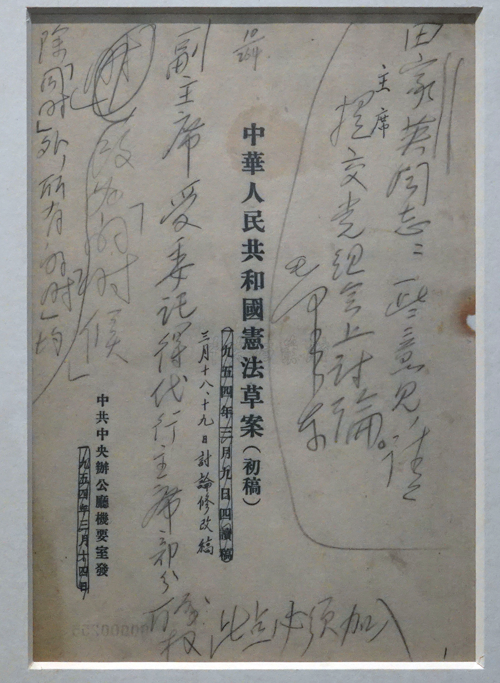 田家英同志：一些意見，請
主席
提交党組会上討論。
毛澤东
中華人民共和國憲法草案（初稿）
一九五四年三月九日四讀稿
三月十八、十九日討論修改稿
副主席受委託得代行主席部分
此点必須加入
中共中央辦公廳機要室發
一九五四年三月十四日
改为「的时候
除「同时」外，所有「的时」均